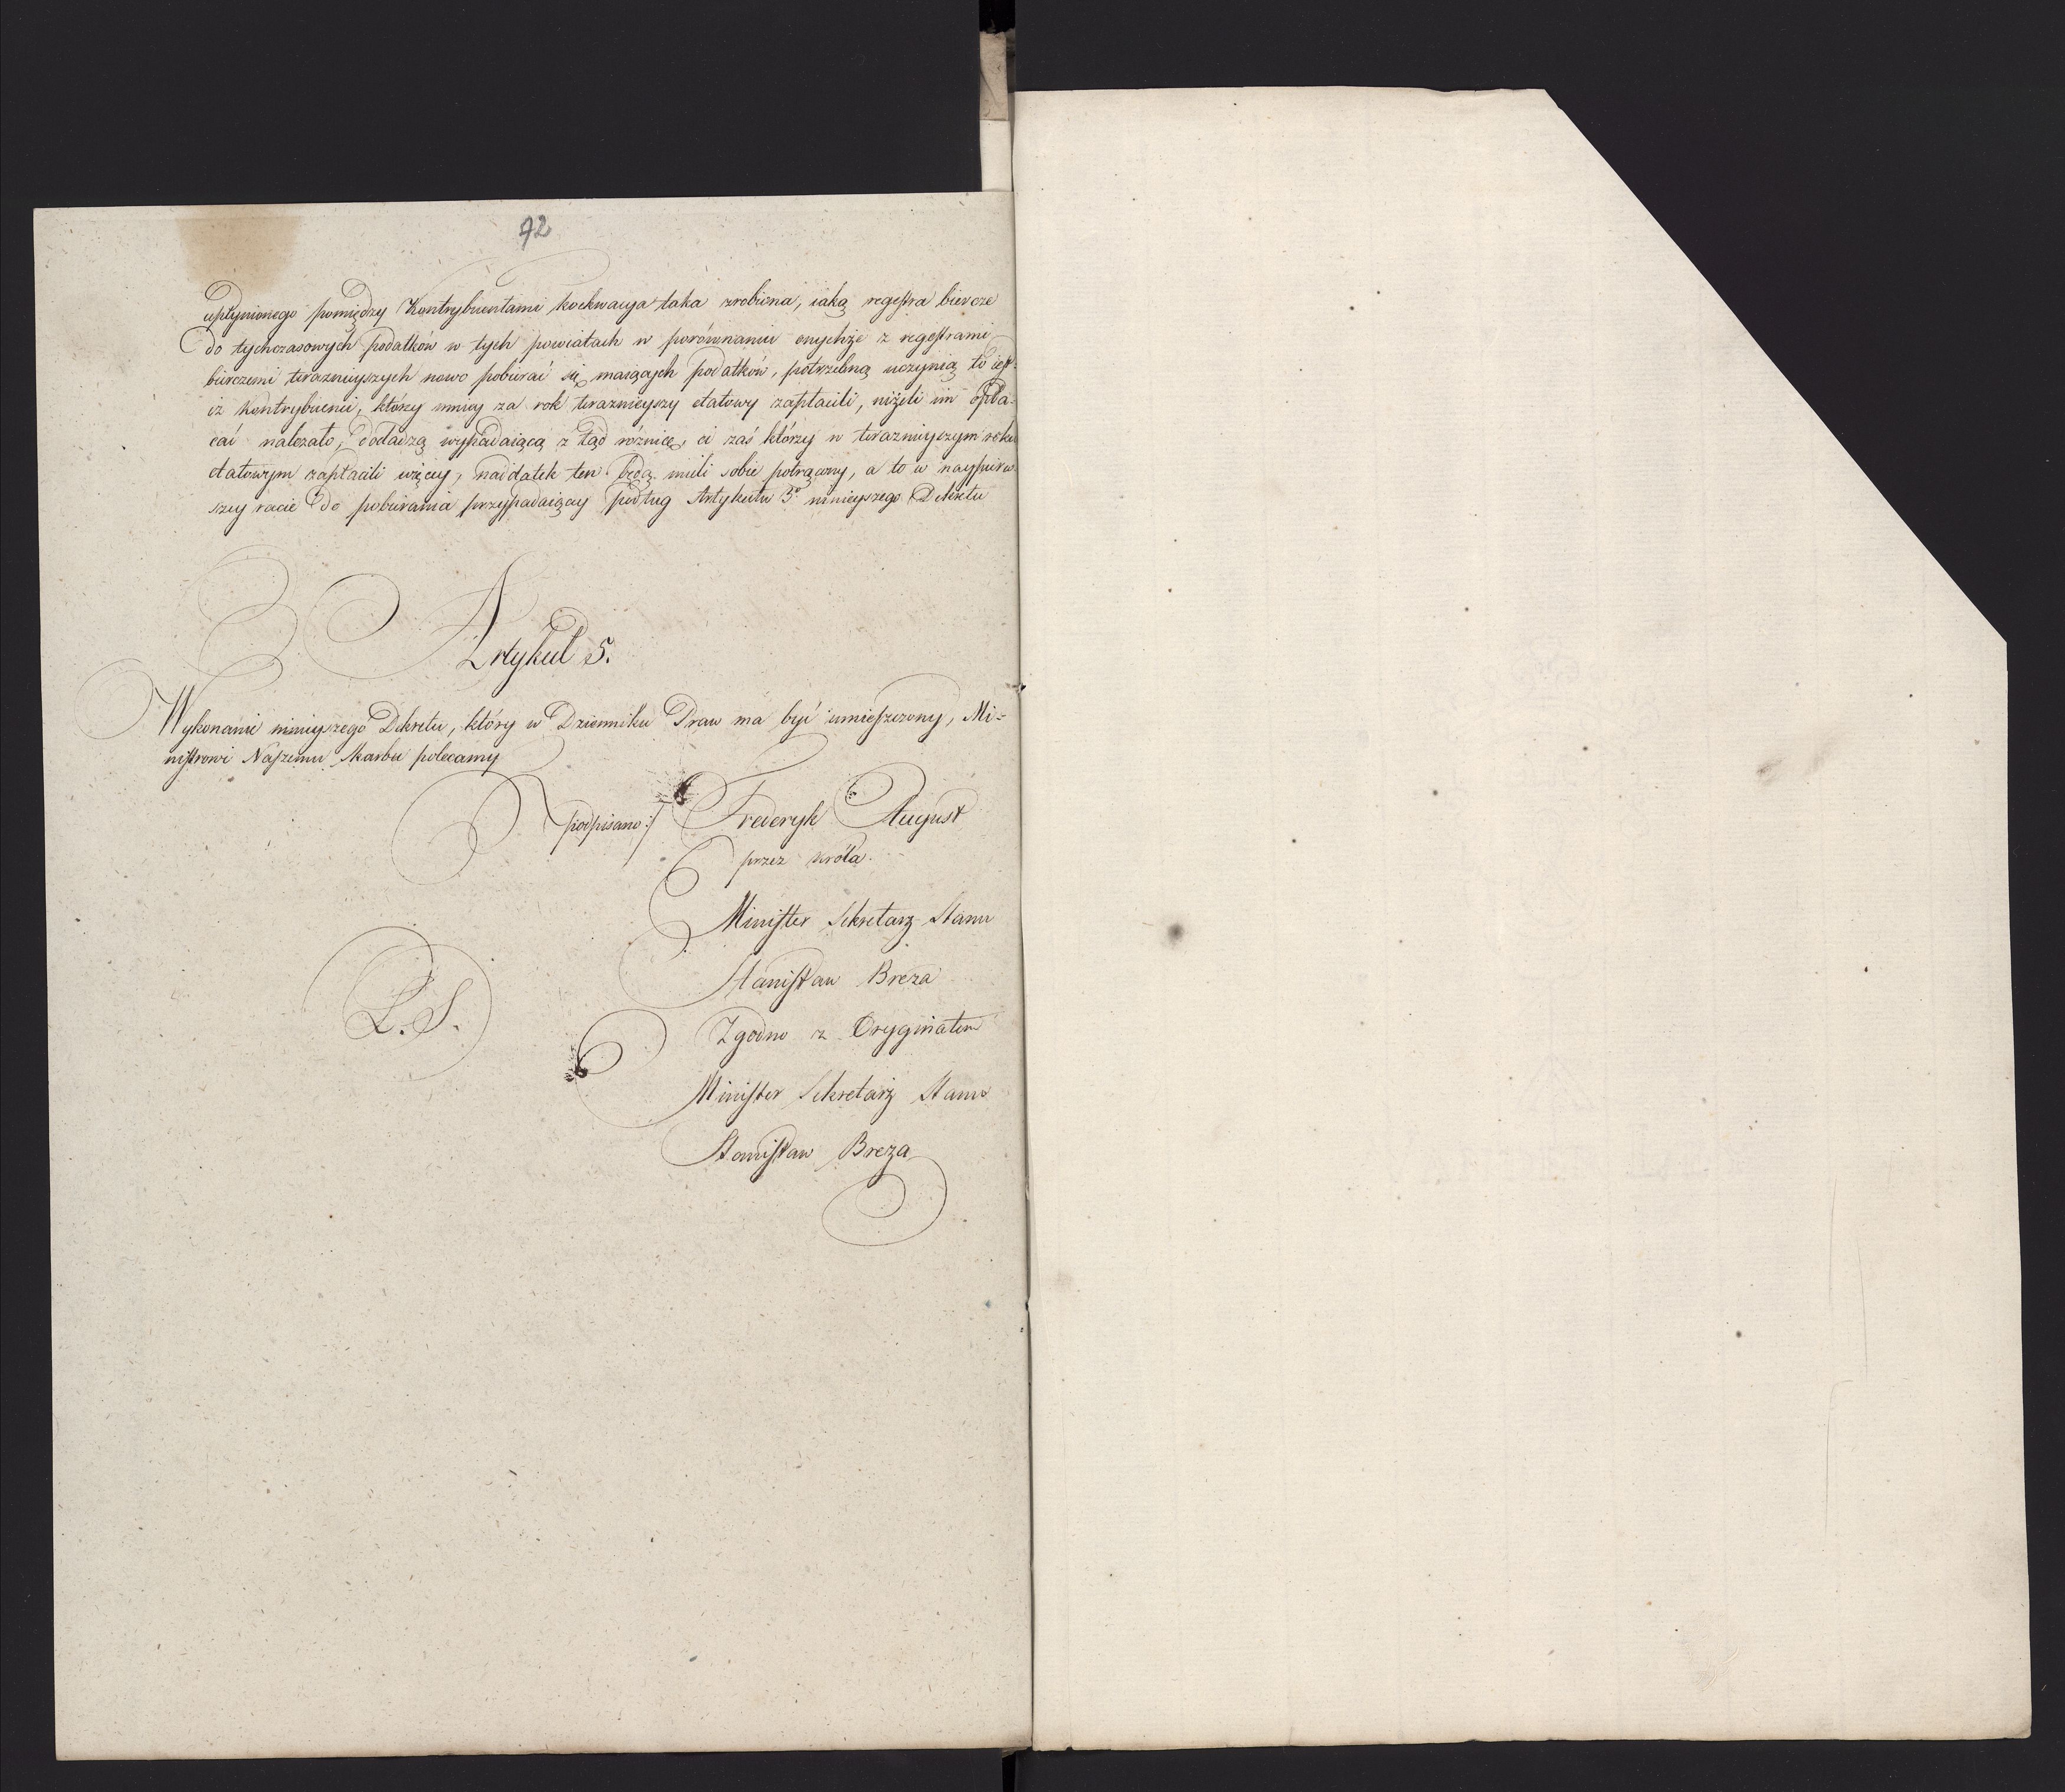 72
upłynionego pomiędzy Kontrybuentami koekwacya taka zrobiona, iaką regestra biercze
do tychczasowych podatków w tych powiatach w porównaniu onychże z regestrami
bierczemi teraznieyszych nowo pobierać się maiących podatków, potrzebną uczynią to iest
iż Kontrybuenci, którzy mniey za rok teraznieyszy etatowy zapłacili, niżeli im opła-
cać należało, dodadzą wypadaiącą z tąd różnicę, ci zaś którzy w teraznieyszym roku
etatowym zapłacili więcey, naddatek ten będą mieli sobie potrącony, a to w naypierw
szey racie do pobierania przypadaiącey podług Artykułu 3º ninieyszego Dekretu
Artykuł 5.
Wykonanie ninieyszego Dekretu, który w Dzienniku Praw ma być umieszczony, Mi=
nistrowi Naszemu Skarbu polecamy
podpisano:/ Frederyk August
przez króla.
Minister Sekretarz Stanu
Stanisław Breza
L. S.
Zgodno z Oryginałem
Minister Sekretarz Stanu
Stanisław Breza